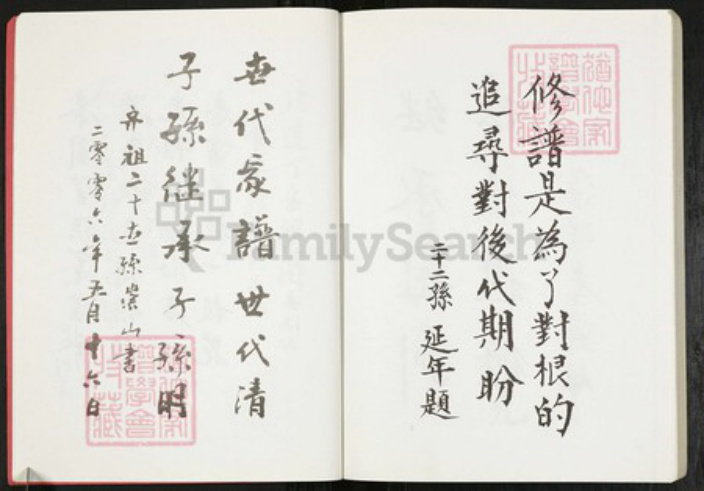 修譜是為了對根的
追尋對後代期盼
二十二孫 延年題
世代家譜世代清
子孫继承子孫明
齐祖二十世孫崇山書
二零零六年五月十六日
FamilySearch